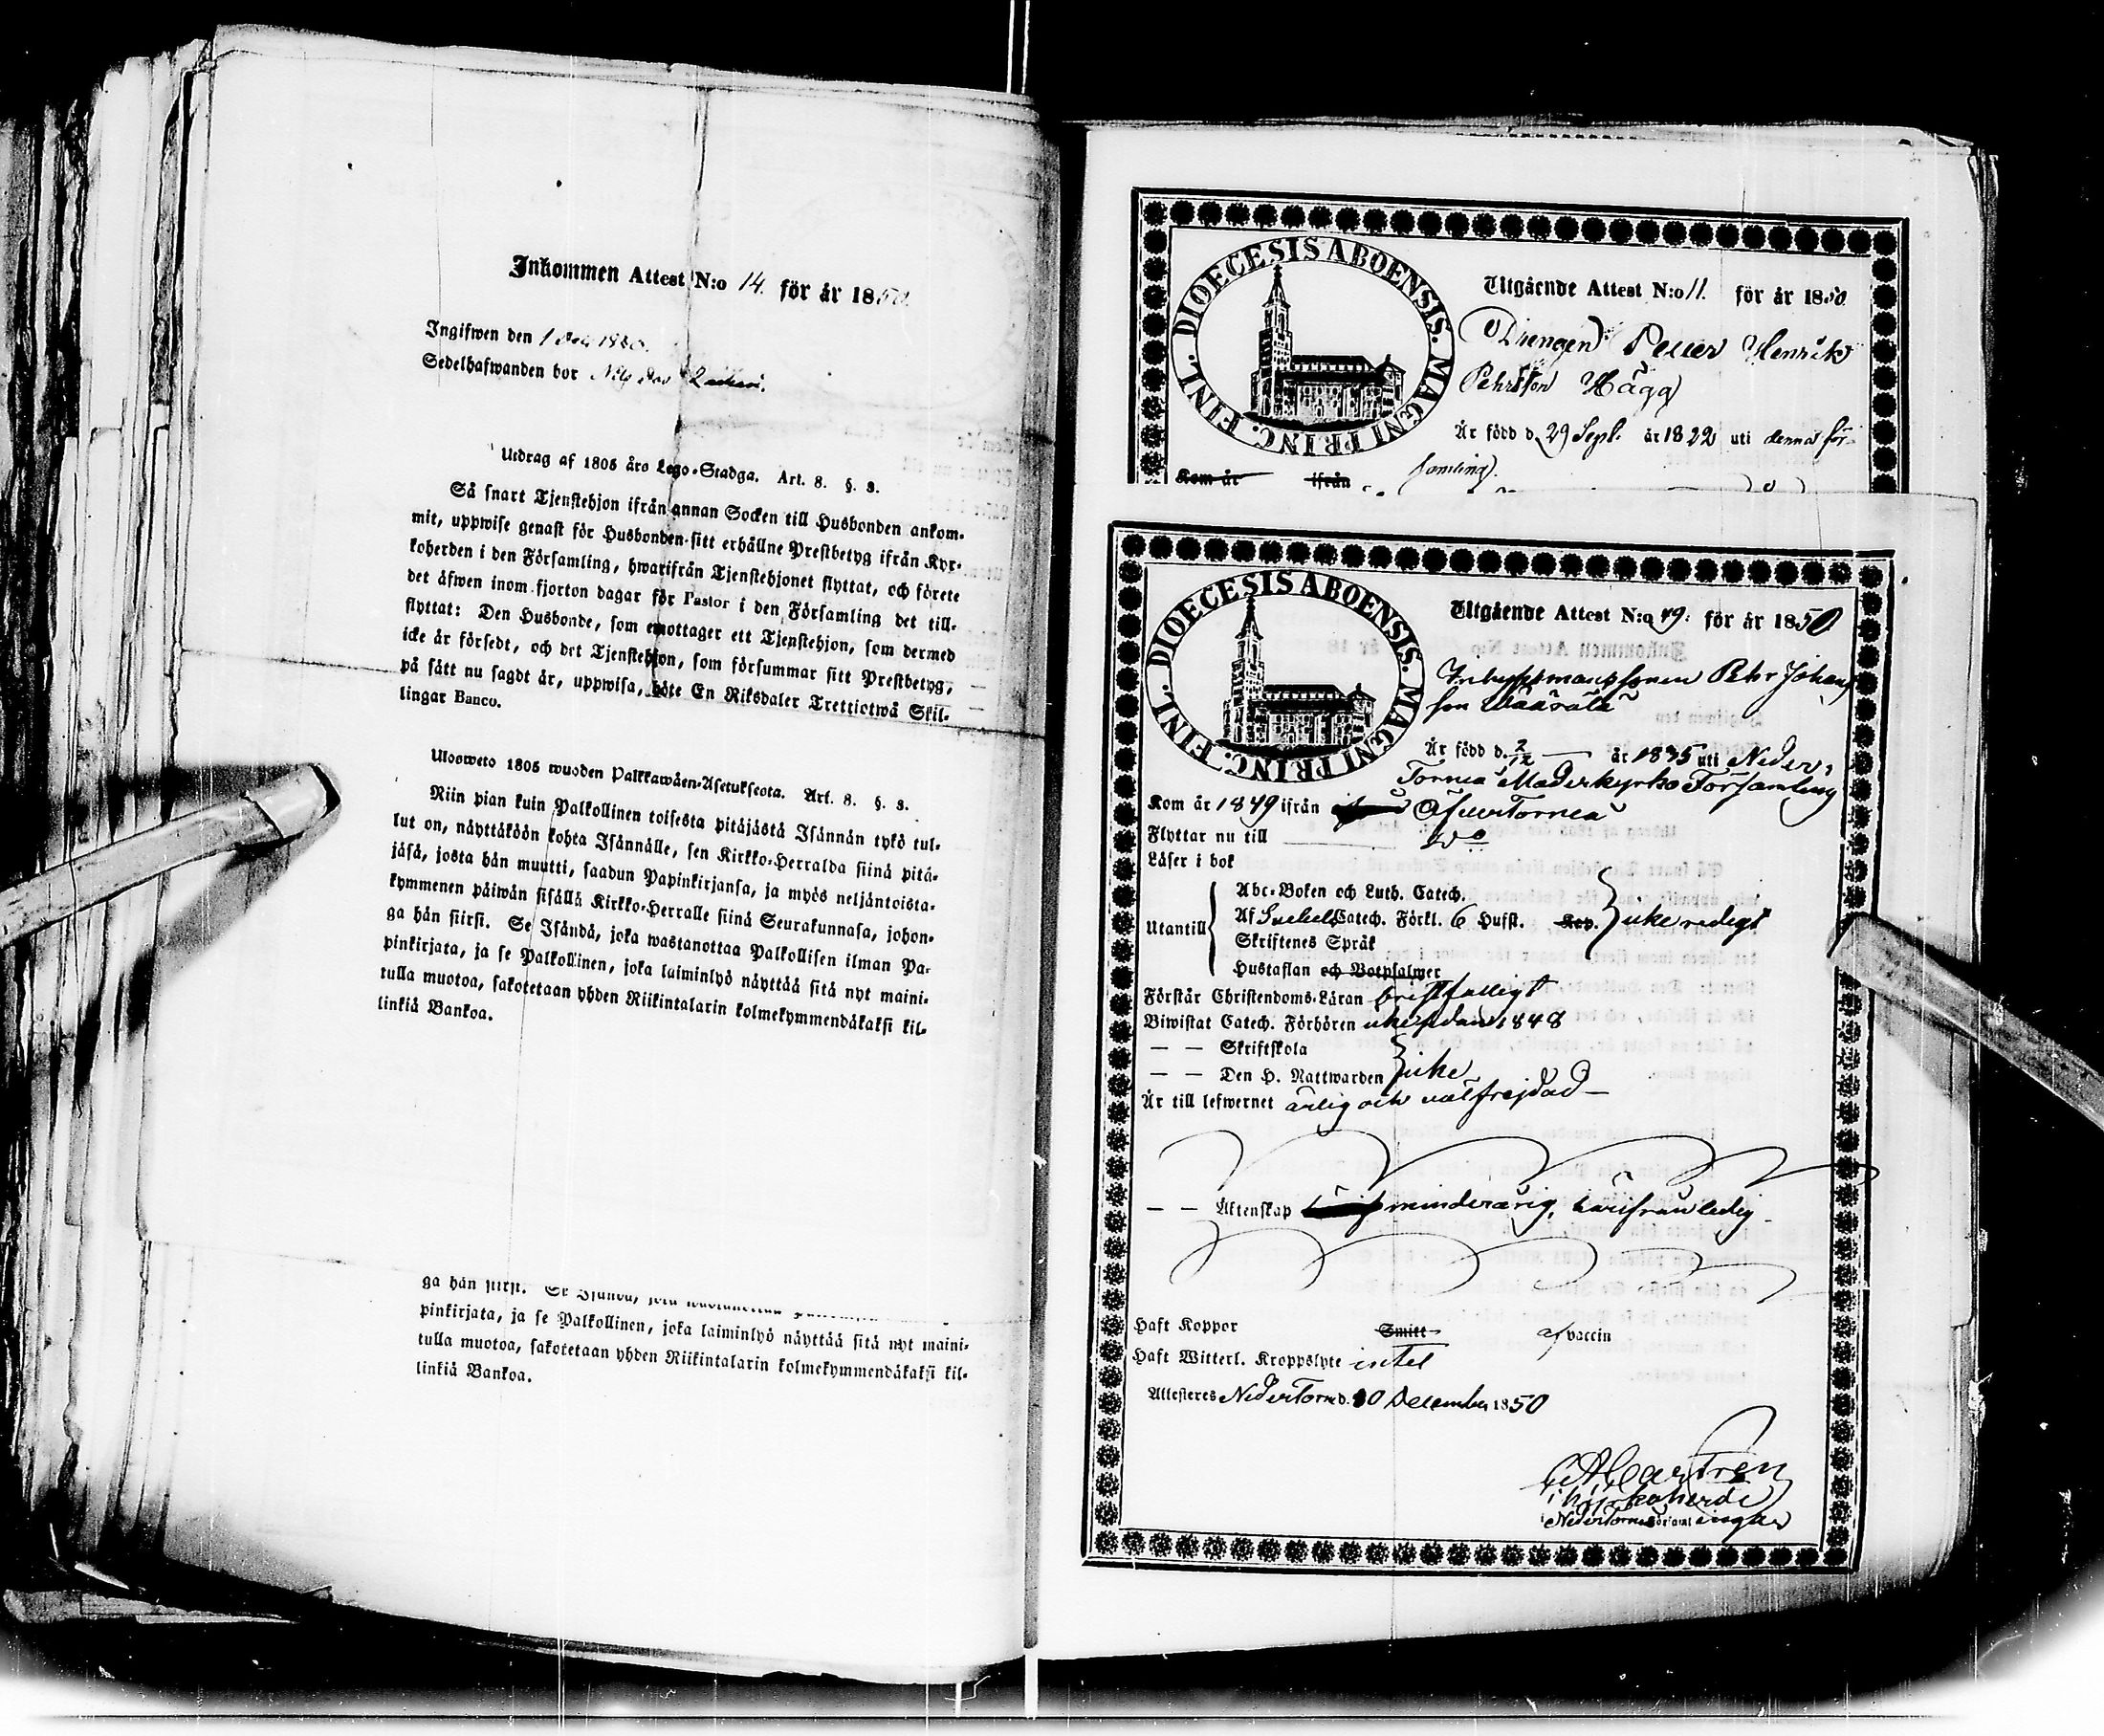 Inkommen Attest N:o 14. för år 1850.
Ingifwen den 1
Sedelhafwanden bor
Utdrag af 1805 års Lego-Stadga. Art. 8. §. 3.
Så snart Tjenstehjon ifrån annan Socken till Husbonden ankom-
mit, uppwise genast för Husbonden sitt erhållne Prestbetyg ifrån Kyr-
koherden i den Församling, hwarifrån Tjenstehjonet flyttat, och förete
det äfwen inom fjorton dagar för Pastor i den Församling det till-
flyttat: Den Husbonde, som emottager ett Tjenstehjon, som dermed
icke är försedt, och det Tjenstehjon, som försummar sitt Prestbetyg,
på sätt nu sagdt är, uppwisa, böte En Riksdaler Trettiotwå Skil-
lingar Banco.
Ulosweto 1805 wuoden Palkkawäen-Asetuksesta. Art. 8. §. 3.
Niin pian kuin Palkollinen toisesta pitäjästä Isännän tykö tul-
lut on, näyttäköön kohta Isännälle, sen Kirkko-Herralda siinä pitä-
jäsä, josta hän muutti, saadun Papinkirjansa, ja myös neljäntoista-
kymmenen päiwän sisällä Kirkko-Herralle siinä Seurakunnasa, johon-
ga hän siirsi. Se Isändä, joka wastanottaa Palkollisen ilman Pa-
pinkirjata, ja se Palkollinen, joka laiminlyö näyttää sitä nyt maini-
tulla muotoa, sakotetaan yhden Riikintalarin kolmekymmendäkaksi kil-
linkiä Bankoa.
ga hän siirsi. Se Isändä, joka wastanottaa
pinkirjata, ja se Palkollinen, joka laiminlyö näyttää sitä nyt maini-
tulla muotoa, sakotetaan yhden Riikintalarin kolmekymmendäkaksi kil-
linkiä Bankoa.
DIOECESIS ABOENSIS. MAGNI PRINC. FINL.
Utgående Attest N:o 11. för år 1850
Drengen Petter Henrik
Pehrsson Hägg
Är född d. 29 Sept. år 1822 uti denna för-
samling.
Kom år ifrån
DIOECESIS ABOENSIS. MAGNI PRINC. FINL.
Utgående Attest N:o 49. för år 1850
Pehr Johans
son Wäärälä
Är född d. 2/12 — år 1835 uti Neder
Torneå Moderkyrko Församling
Kom år 1849 ifrån ÖfwerTorneå
Flyttar nu till do
Läser i bok
Abc-Boken och Luth. Catech.
Utantill Af Svebels Catech. Förkl. 6 Hufst. icke redigt
Skriftenes Språk
Hustaflan och Botpsalmer
Förstår Christendoms-Läran bristfälligt
Biwistat Catech. Förhören icke sedan 1848
— — Skriftskola
— — Den H. Nattwarden icke
Är till lefwernet ärlig och välfrejdad —
— — Äktenskap minderårig, härifrån ledig
Haft Koppor Smitt af vaccin
Haft Witterl. Kroppslyte intet
Attesteres NederTorneå d. 10 December 1850
Castrén
Kyrkoherde
NederTorneå Församlingar